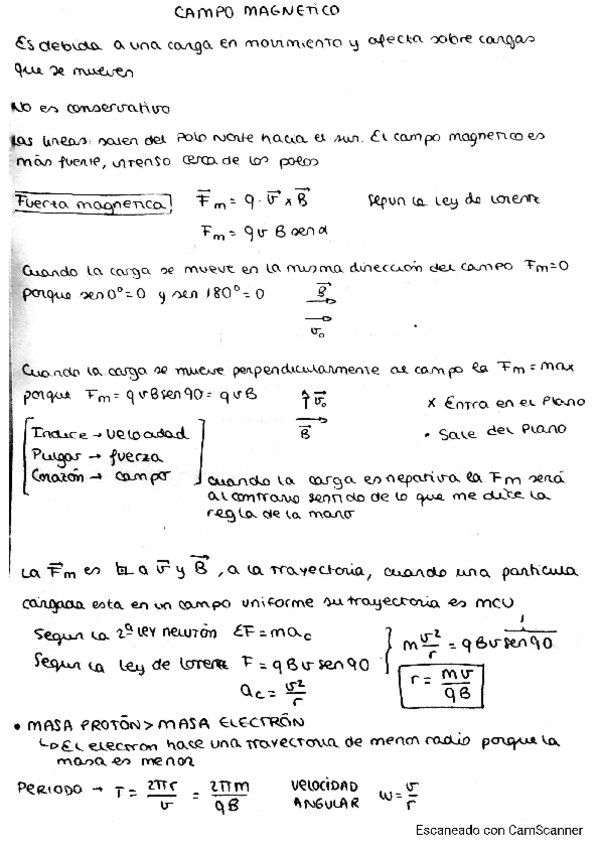 CAMPO MAGNETICO
Es debida a una carga en movimiento y afecta sobre cargas
que se mueven
No es conservativo
Las lineas salen del Polo Norte hacia el sur. El campo magnetico es
más fuerte, intenso cerca de los polos
Fuerza magnetica F⃗m = q · v⃗ x B⃗ según la ley de lorentz
Fm = q v B sen α
Cuando la carga se mueve en la misma dirección del campo Fm=0
porque sen 0º=0 y sen 180º=0 B⃗
v₀
Cuando la carga se mueve perpendicularmente al campo la Fm = max
porque Fm = q v B sen 90 = q v B ↑ v⃗₀ x Entra en el Plano
B⃗ • Sale del Plano
Indice → velocidad
Pulgar → fuerza
Corazón → campo
cuando la carga es negativa la Fm será
al contrario sentido de lo que me dice la
regla de la mano
La F⃗m es ⊥ a v⃗ y B⃗, a la trayectoria, cuando una particula
cargada esta en un campo uniforme su trayectoria es MCU
Segun la 2ª ley newton ΣF = m ac
Segun la ley de lorentz F = q B v sen 90
ac = v²/r
m v²/r = q B v sen 90 1
r = mv/qB
• MASA PROTÓN > MASA ELECTRÓN
↳ El electron hace una trayectoria de menor radio porque la
masa es menor
PERIODO → T = 2πr/v = 2πm/qB VELOCIDAD ANGULAR ω = v/r
Escaneado con CamScanner